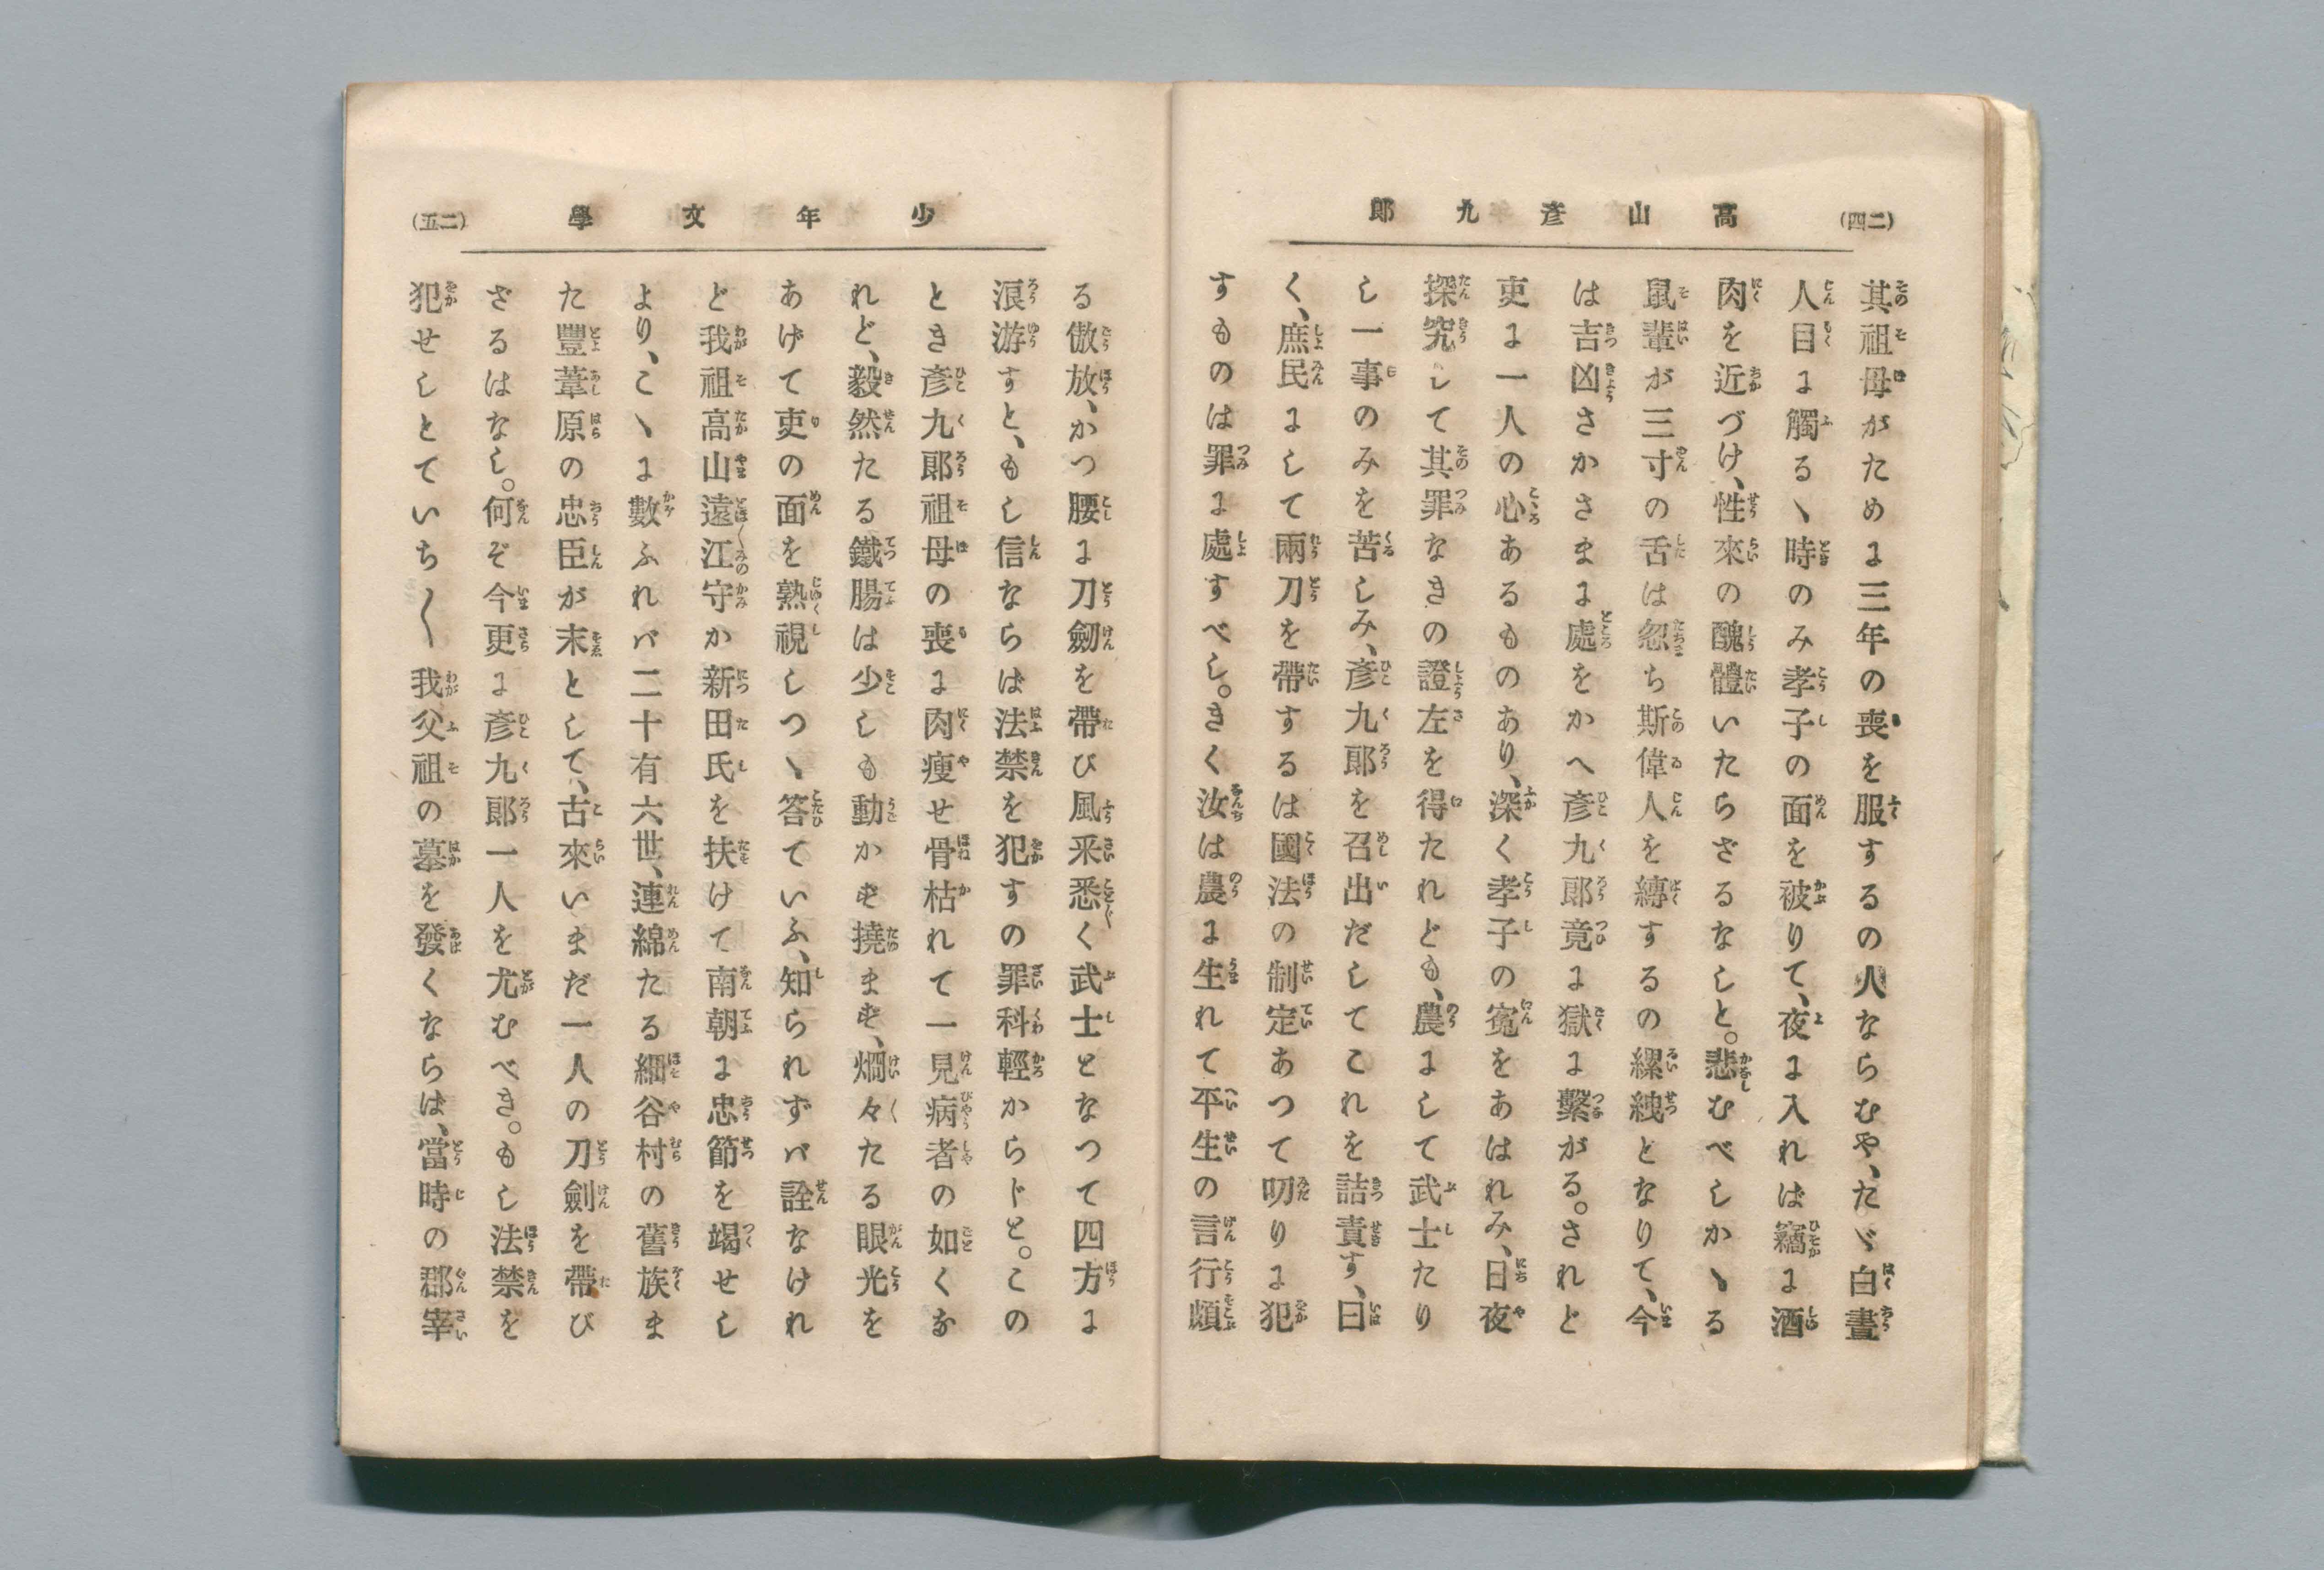 高山彦九郎
(二四)
其祖母がために三年の喪を服するの人ならむや、たゞ白晝
人目に觸るゝ時のみ孝子の面を被りて、夜に入れば竊に酒
肉を近づけ、性來の醜體いたらざるなしと。悲むべしかゝる
鼠輩が三寸の舌は忽ち斯偉人を縛するの縲絏となりて、今
は吉凶さかさまに處をかへ彥九郎竟に獄に繫がる。されと
吏に一人の心あるものあり、深く孝子の寃をあはれみ、日夜
探究して其罪なきの證左を得たれども、農にして武士たり
し一事のみを苦しみ、彥九郎を召出だしてこれを詰責す、曰
く、庶民にして兩刀を帶するは國法の制定あつて叨りに犯
すものは罪に處すべし。きく汝は農に生れて平生の言行頗
少年文學
(二五)
る傲放、かつ腰に刀劒を帶び風采悉く武士となつて四方に
浪游すと、もし信ならば法禁を犯すの罪科輕からじと。この
とき彥九郎祖母の喪に肉瘦せ骨枯れて一見病者の如くな
れど、毅然たる鐵腸は少しも動かず撓まず、烱々たる眼光を
あげて吏の面を熟視しつゝ答ていふ、知られずバ詮なけれ
ど我祖高山遠江守か新田氏を扶けて南朝に忠節を竭せし
より、こゝに數ふれバ二十有六世、連綿たる細谷村の舊族ま
た豐葦原の忠臣が末として、古來いまだ一人の刀劍を帶び
ざるはなし。何ぞ今更に彥九郎一人を尤むべき。もし法禁を
犯せしとていち〱我父祖の墓を發くならは、當時の郡宰